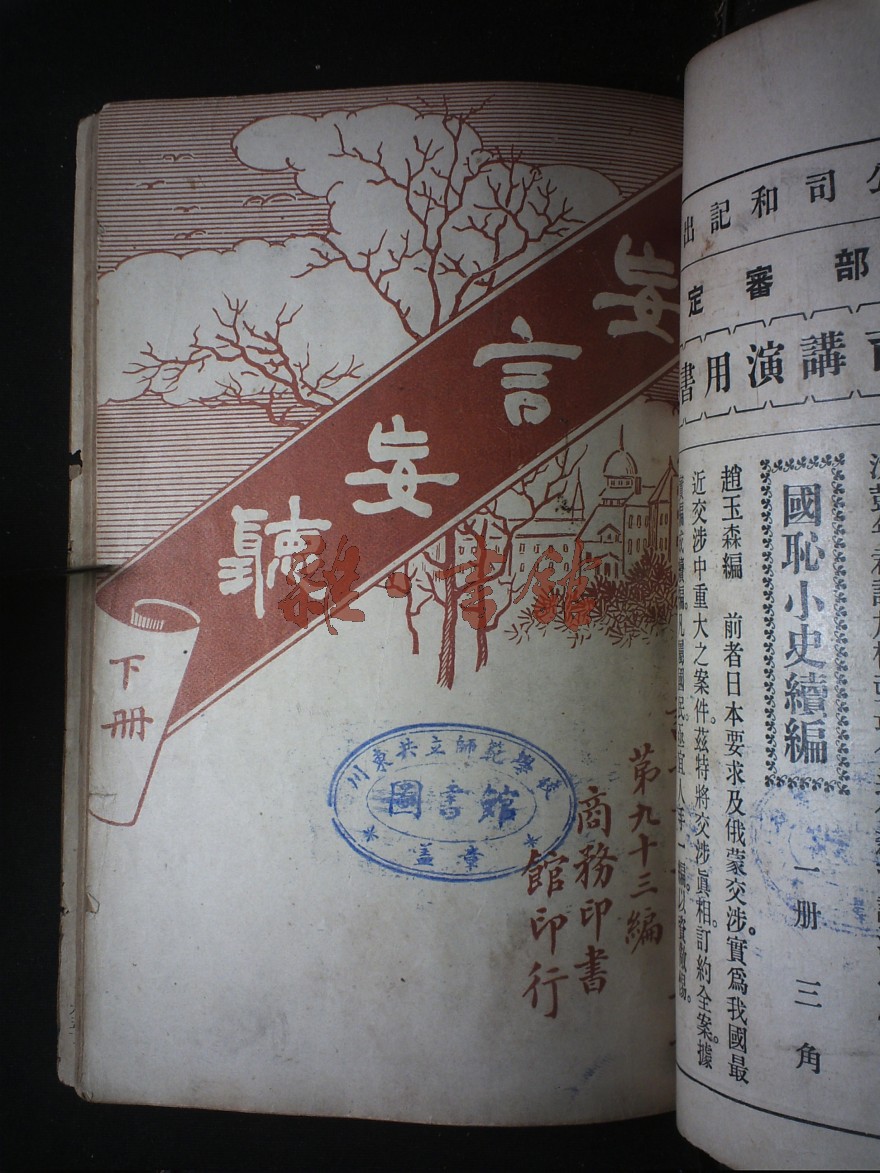 妄言妄聽
下册
第九十三編
商務印書
館印行
川東共立師範學校
圖書館
蓋章
雜·書館
司和記出
部審定
講演用書
國恥小史續編
一册 三角
趙玉森編 前者日本要求及俄蒙交涉。實爲我國最
近交涉中重大之案件。茲特將交涉眞相。訂約全案。據